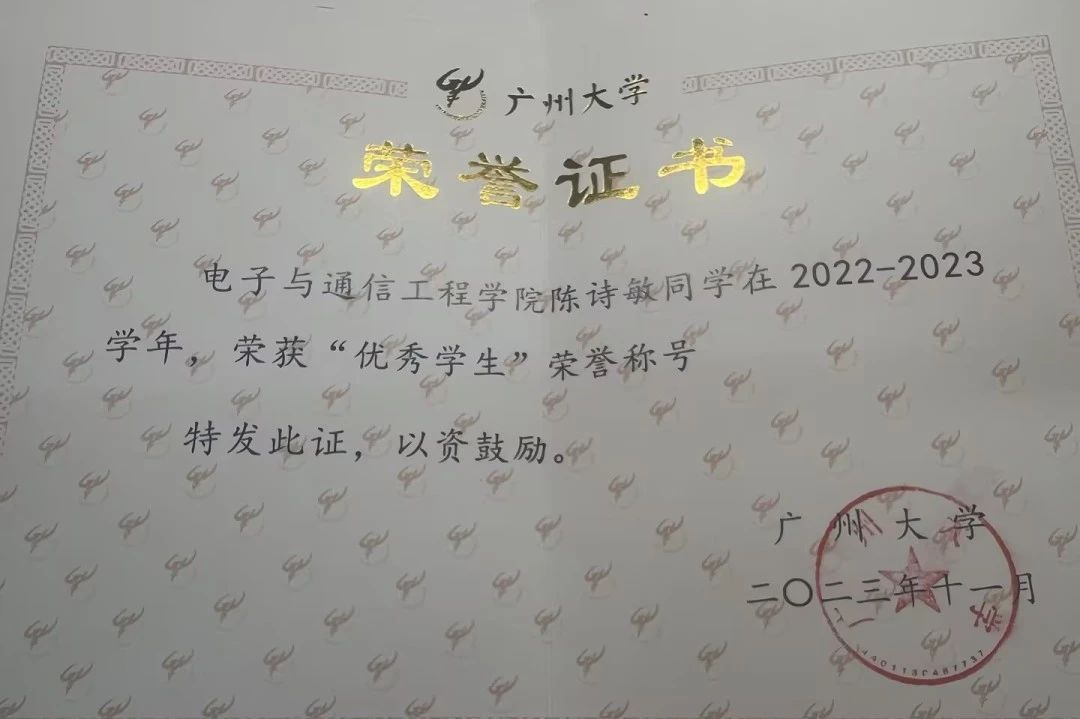 广州大学
荣誉证书
电子与通信工程学院陈诗敏同学在 2022-2023
学年，荣获“优秀学生”荣誉称号
特发此证，以资鼓励。
广州大学
二〇二三年十一月